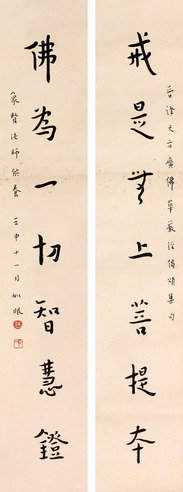 晉譯大方廣佛華嚴經偈頌集句
戒是無上菩提本
佛為一切智慧鐙
家賢法師供養 壬申十一月 如眼